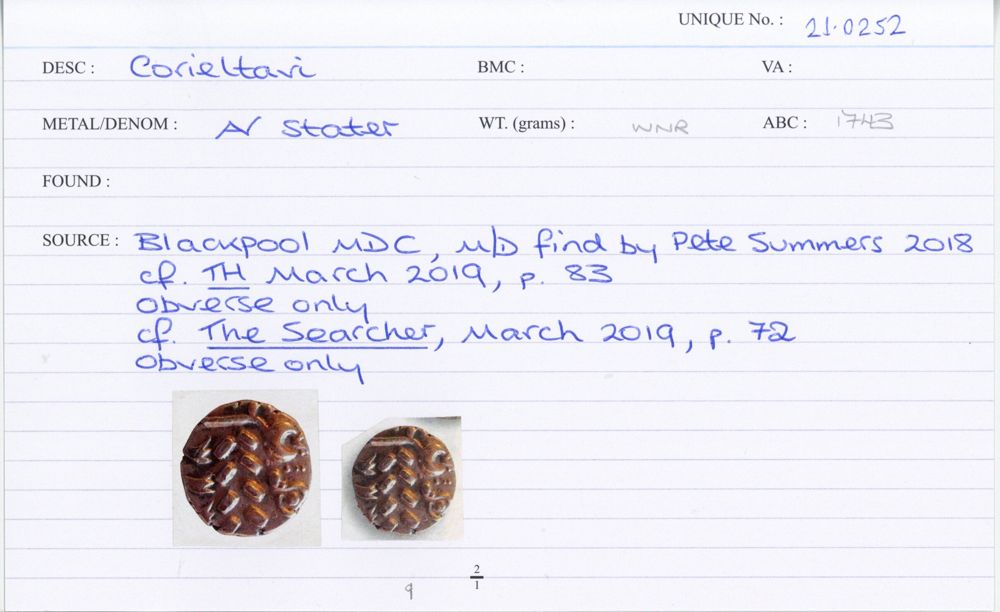 UNIQUE No. : 21.0252
DESC : Corieltavi BMC : VA :
METAL/DENOM : AV Stater WT. (grams) : WNR ABC : 1743
FOUND :
SOURCE : Blackpool MDC, M/D find by Pete Summers 2018
cf. TH March 2019, p. 83
Obverse only
cf. The Searcher, March 2019, p. 72
Obverse only
2
1
9